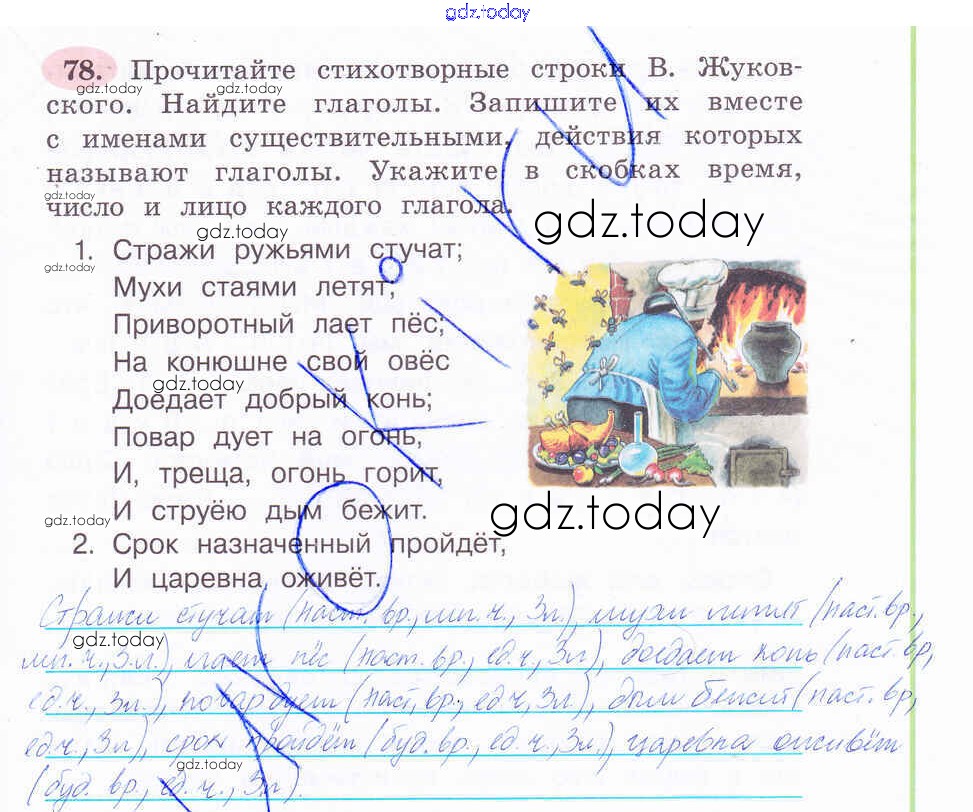 gdz.today
78. Прочитайте стихотворные строки В. Жуков-
gdz.today gdz.today gdz.today
ского. Найдите глаголы. Запишите их вместе
с именами существительными, действия которых
называют глаголы. Укажите в скобках время,
gdz.today
число и лицо каждого глагола.
gdz.today
gdz.today
1. Стражи ружьями стучат;
gdz.today
Мухи стаями летят;
Приворотный лает пёс;
На конюшне свой овёс
gdz.today
Доедает добрый конь;
Повар дует на огонь,
И, треща, огонь горит,
И струёю дым бежит.
gdz.today
gdz.today
2. Срок назначенный пройдёт,
И царевна оживёт.
Стражи стучат (наст. вр., мн. ч., 3л), мухи летят (наст. вр,
gdz.today
мн. ч., 3.л.), лает пёс (наст. вр., ед.ч., 3л), доедает конь (наст. вр,
ед.ч., 3л.), повар дует (наст. вр., ед.ч, 3л), дым бежит (наст. вр,
ед.ч., 3л), срок пройдёт (буд. вр., ед. ч., 3л.), царевна оживёт
gdz.today
(буд. вр., ед. ч., 3л).